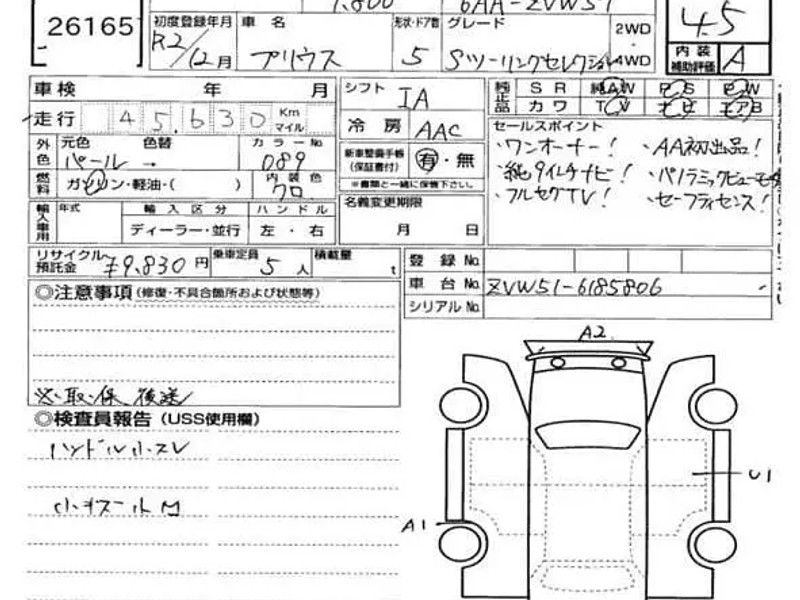 26165
初度登録年月
車名
形状・ドア数
グレード
1,800
6AA-ZVW51
R2/12月
プリウス
5
Sツーリングセレクション
2WD
4WD
4.5
内装
補助評価
A
車検 年 月
走行 45,630 Km
マイル
外色
元色 色替
カラーNo
パール →
089
燃料
ガソリン・軽油・( )
内装色
クロ
輸入車用
年式
輸入区分
ハンドル
ディーラー・並行
左・右
シフト
IA
冷房
AAC
新車整備手帳
(保証書付)
有・無
※書類と一緒に保管下さい。
名義変更期限
月 日
純正品
SR
純AW
PS
PW
カワ
TV
ナビ
エアB
セールスポイント
・ワンオーナー!
・AA初出品!
・純9インチナビ!
・パノラミックビューモニタ
・フルセグTV!
・セーフティセンス!
リサイクル
預託金
¥9,830円
乗車定員
5人
積載量
t
登録No.
車台No.
ZVW51-6185806
シリアルNo.
◎注意事項(修復・不具合箇所および状態等)
※取・保 後送
◎検査員報告(USS使用欄)
ハンドル小スレ
A2
U1
A1